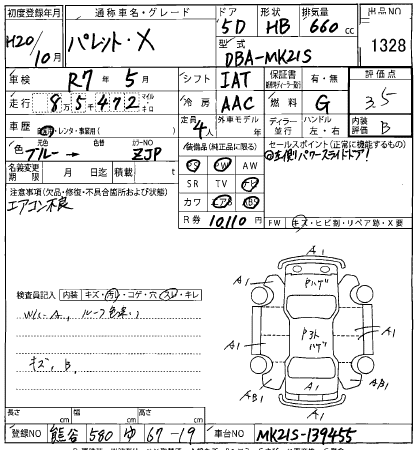 初度登録年月 通称車名・グレード ドア 形状 排気量 出品NO
H20/10月 パレット・X 5D HB 660cc 1328
型式
DBA-MK21S
車検 R7年5月 シフト IAT 保証書 有・無 評価点
走行 8万5千472 マイル キロ 冷房 AAC 燃料 G 3.5
車歴 レンタ・事業用 定員 4人 外車モデル ディラー 並行 ハンドル 左・右 内装評価 B
色 元色 ブルー → 色替 カラーNO ZJP
装備品(純正品に限る) セールスポイント(正常に機能するもの)
PS PW AW ◎左側パワースライドドア!
名義変更期限 月 日迄 積載 t
SR TV ナビ
注意事項(欠品・修復・不具合箇所および状態)
エアコン不良
カワ エアB ABS
R券 10,110円
FW キズ・ヒビ割・リペア跡・X要
検査員記入 内装 キズ・汚レ・コゲ・穴 スレ・キレ
W/C-A, ルーフ色あい
キズ, B,
A1
A1 Pハゲ A1
A1 Pヨトハゲ A1
AB1 A1 AB1
A1
長さ cm 幅 cm 高さ cm
登録NO 熊谷 580 ゆ 67-19 車台NO MK21S-139455